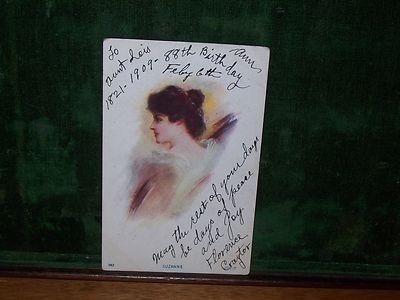 To
Aunt Lois
1821-1909-
88th Birthday
Feby 6th
Ann
May the rest of your days
be days of Peace
and Joy
Florence
Crayton
SUZANNE